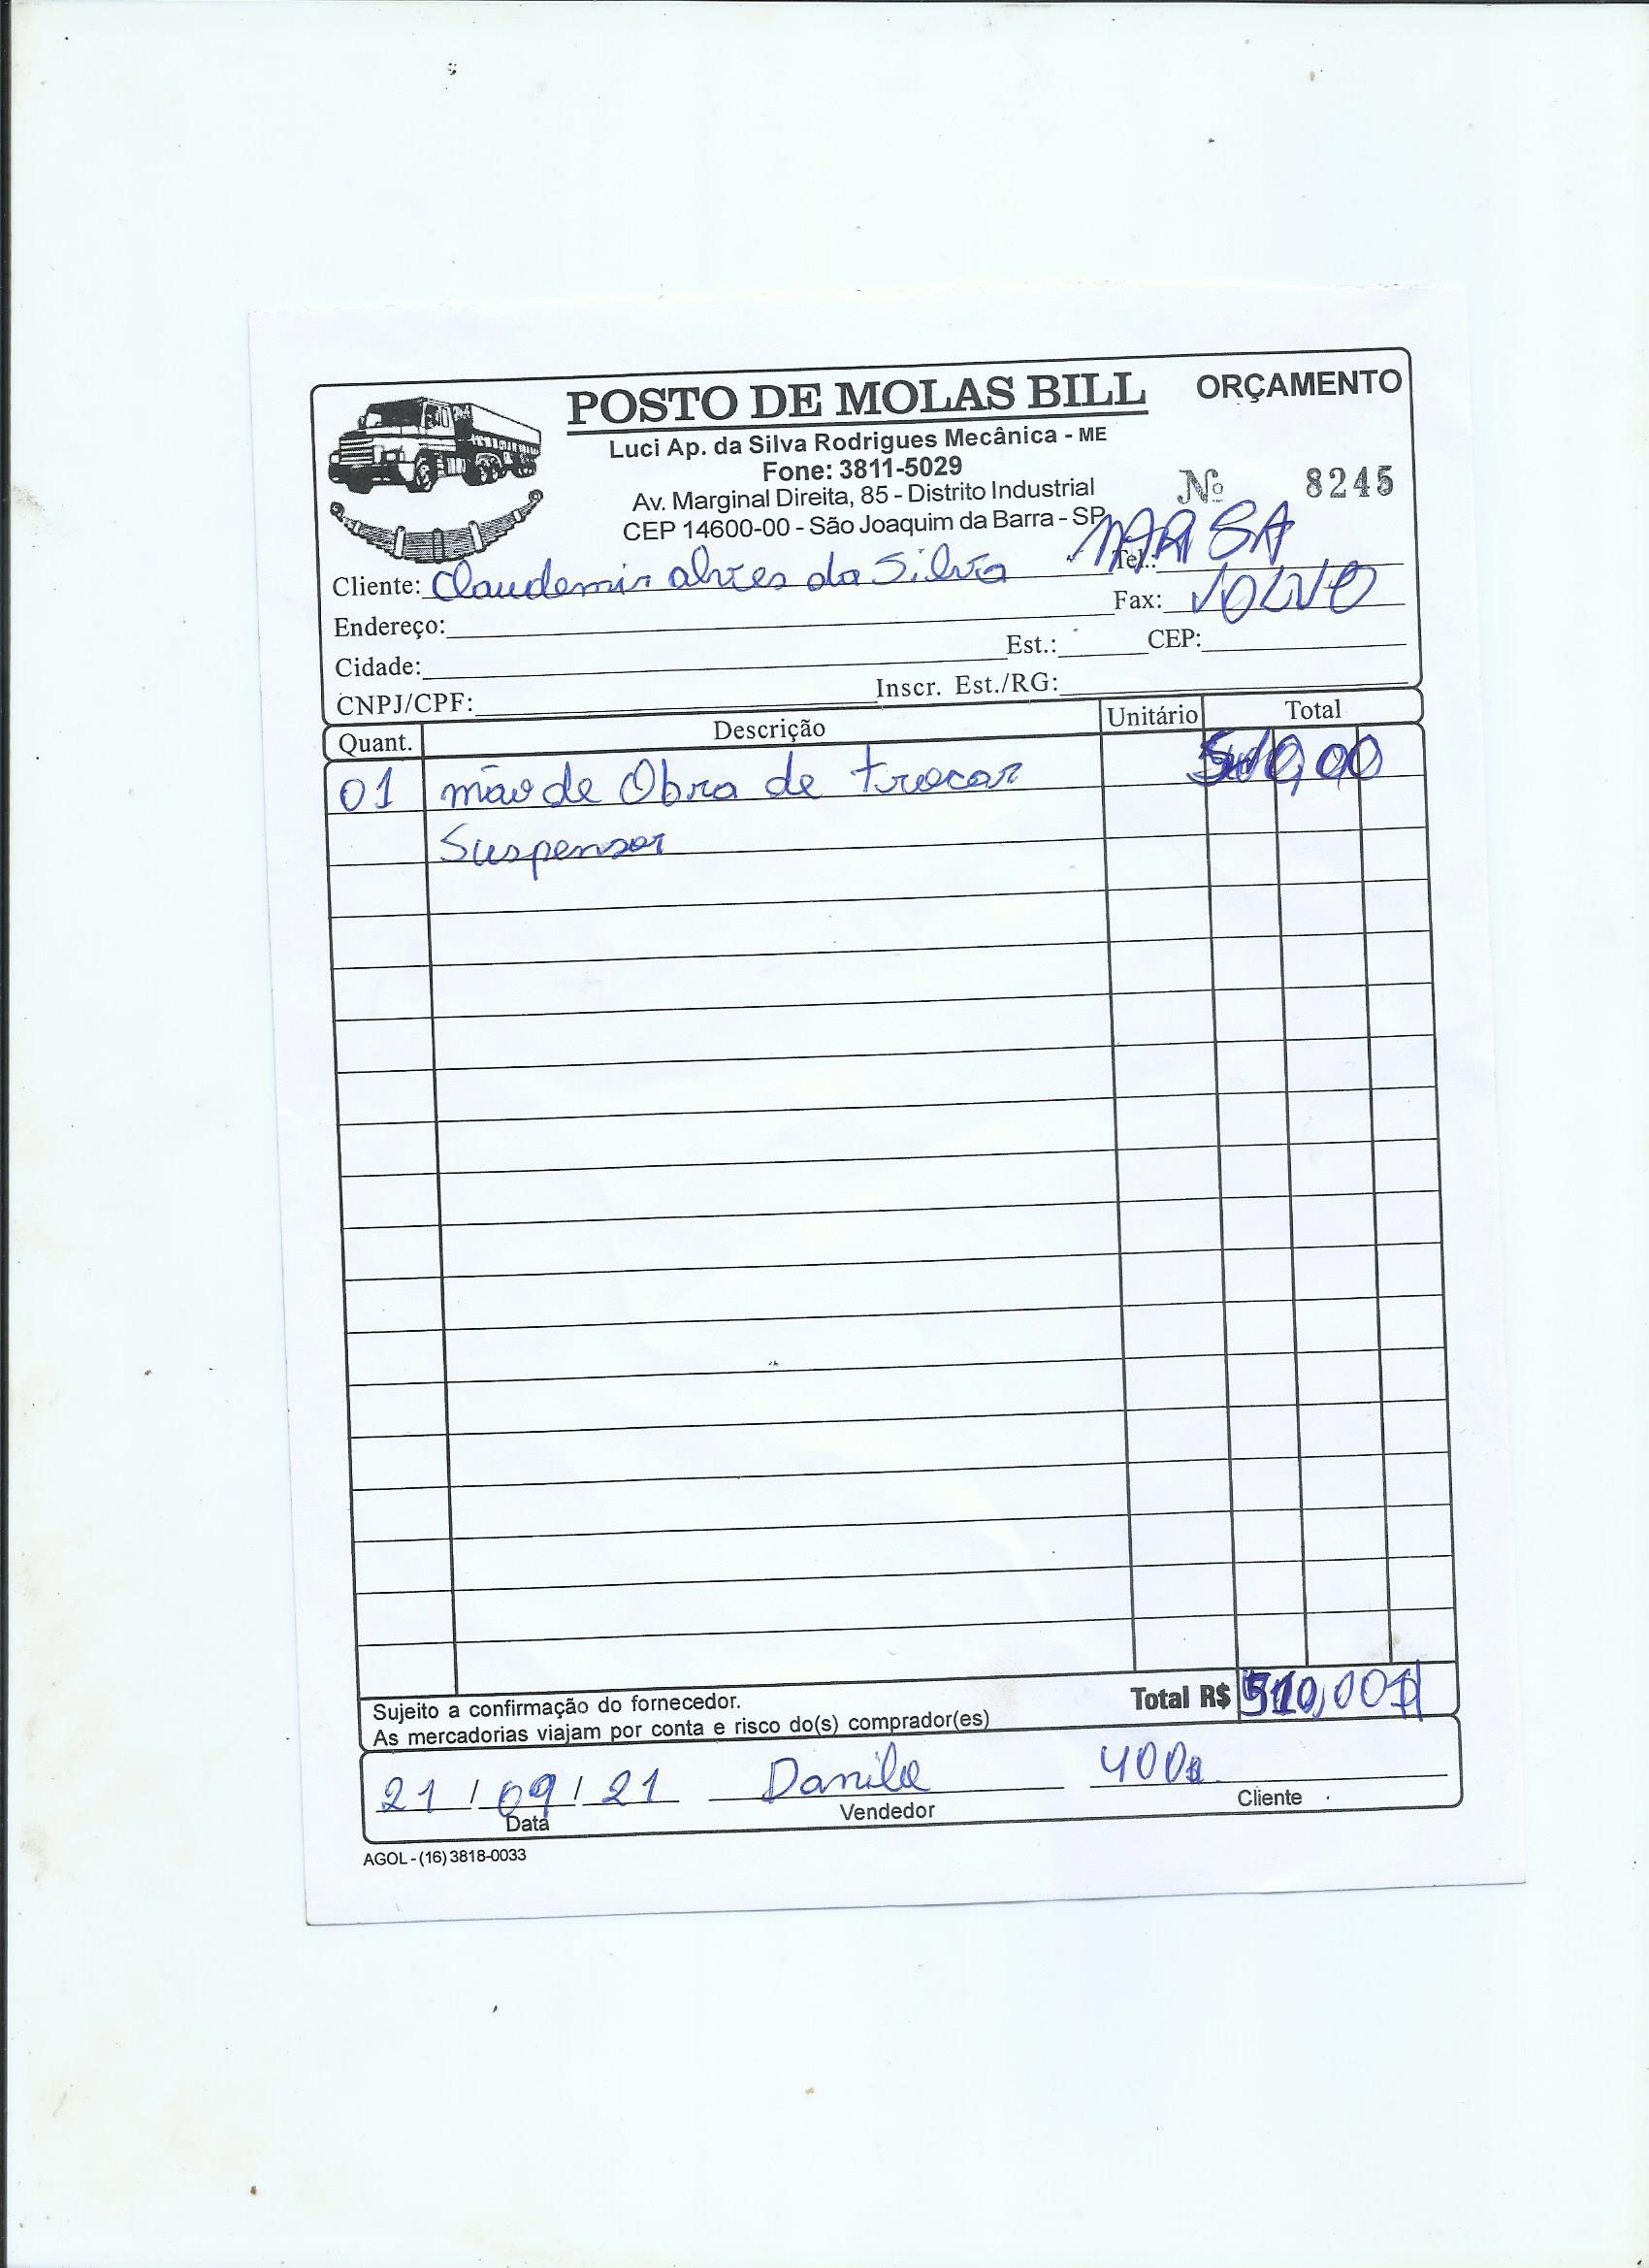 POSTO DE MOLAS BILL ORÇAMENTO
Luci Ap. da Silva Rodrigues Mecânica - ME
Fone: 3811-5029
Av. Marginal Direita, 85 - Distrito Industrial
Nº 8245
CEP 14600-00 - São Joaquim da Barra - SP
Cliente: Claudemir alves da Silva Tel.:
Endereço: Fax: VOLVO
Cidade: Est.: CEP:
CNPJ/CPF: Inscr. Est./RG:
Quant. Descrição Unitário Total
01 mão de Obra de trocar
Suspensor
Sujeito a confirmação do fornecedor. Total R$
As mercadorias viajam por conta e risco do(s) comprador(es)
21 / 09 / 21 Danilo
Data Vendedor Cliente
AGOL - (16) 3818-0033